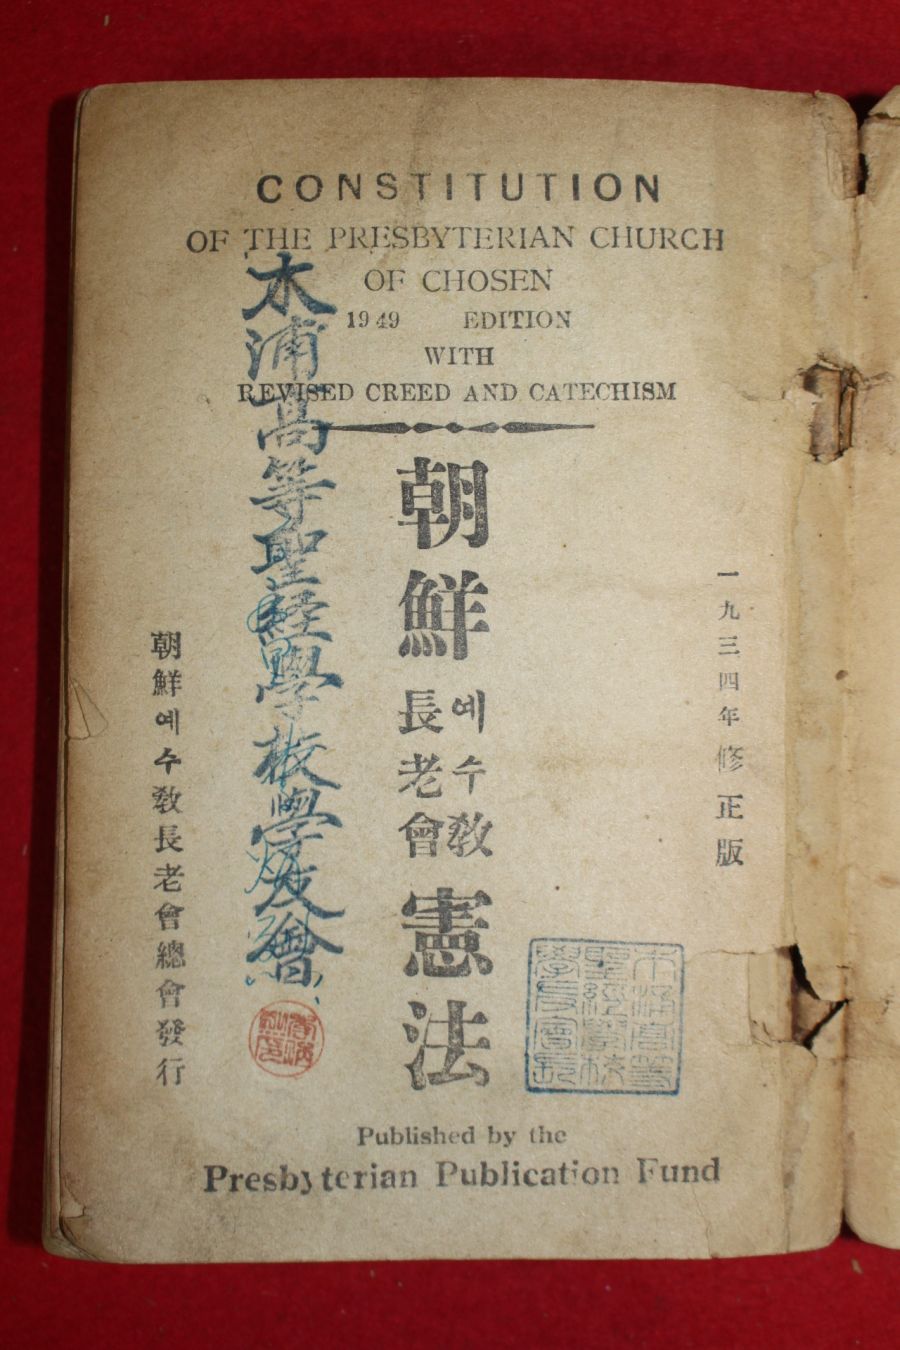 CONSTITUTION
OF THE PRESBYTERIAN CHURCH
OF CHOSEN
1949 EDITION
WITH
REVISED CREED AND CATECHISM
一九三四年修正版
朝鮮예수敎長老會憲法
木浦高等聖経學校學友會
朝鮮예수敎長老會總會發行
木浦高等
聖經學校
學友會長
Published by the
Presbyterian Publication Fund